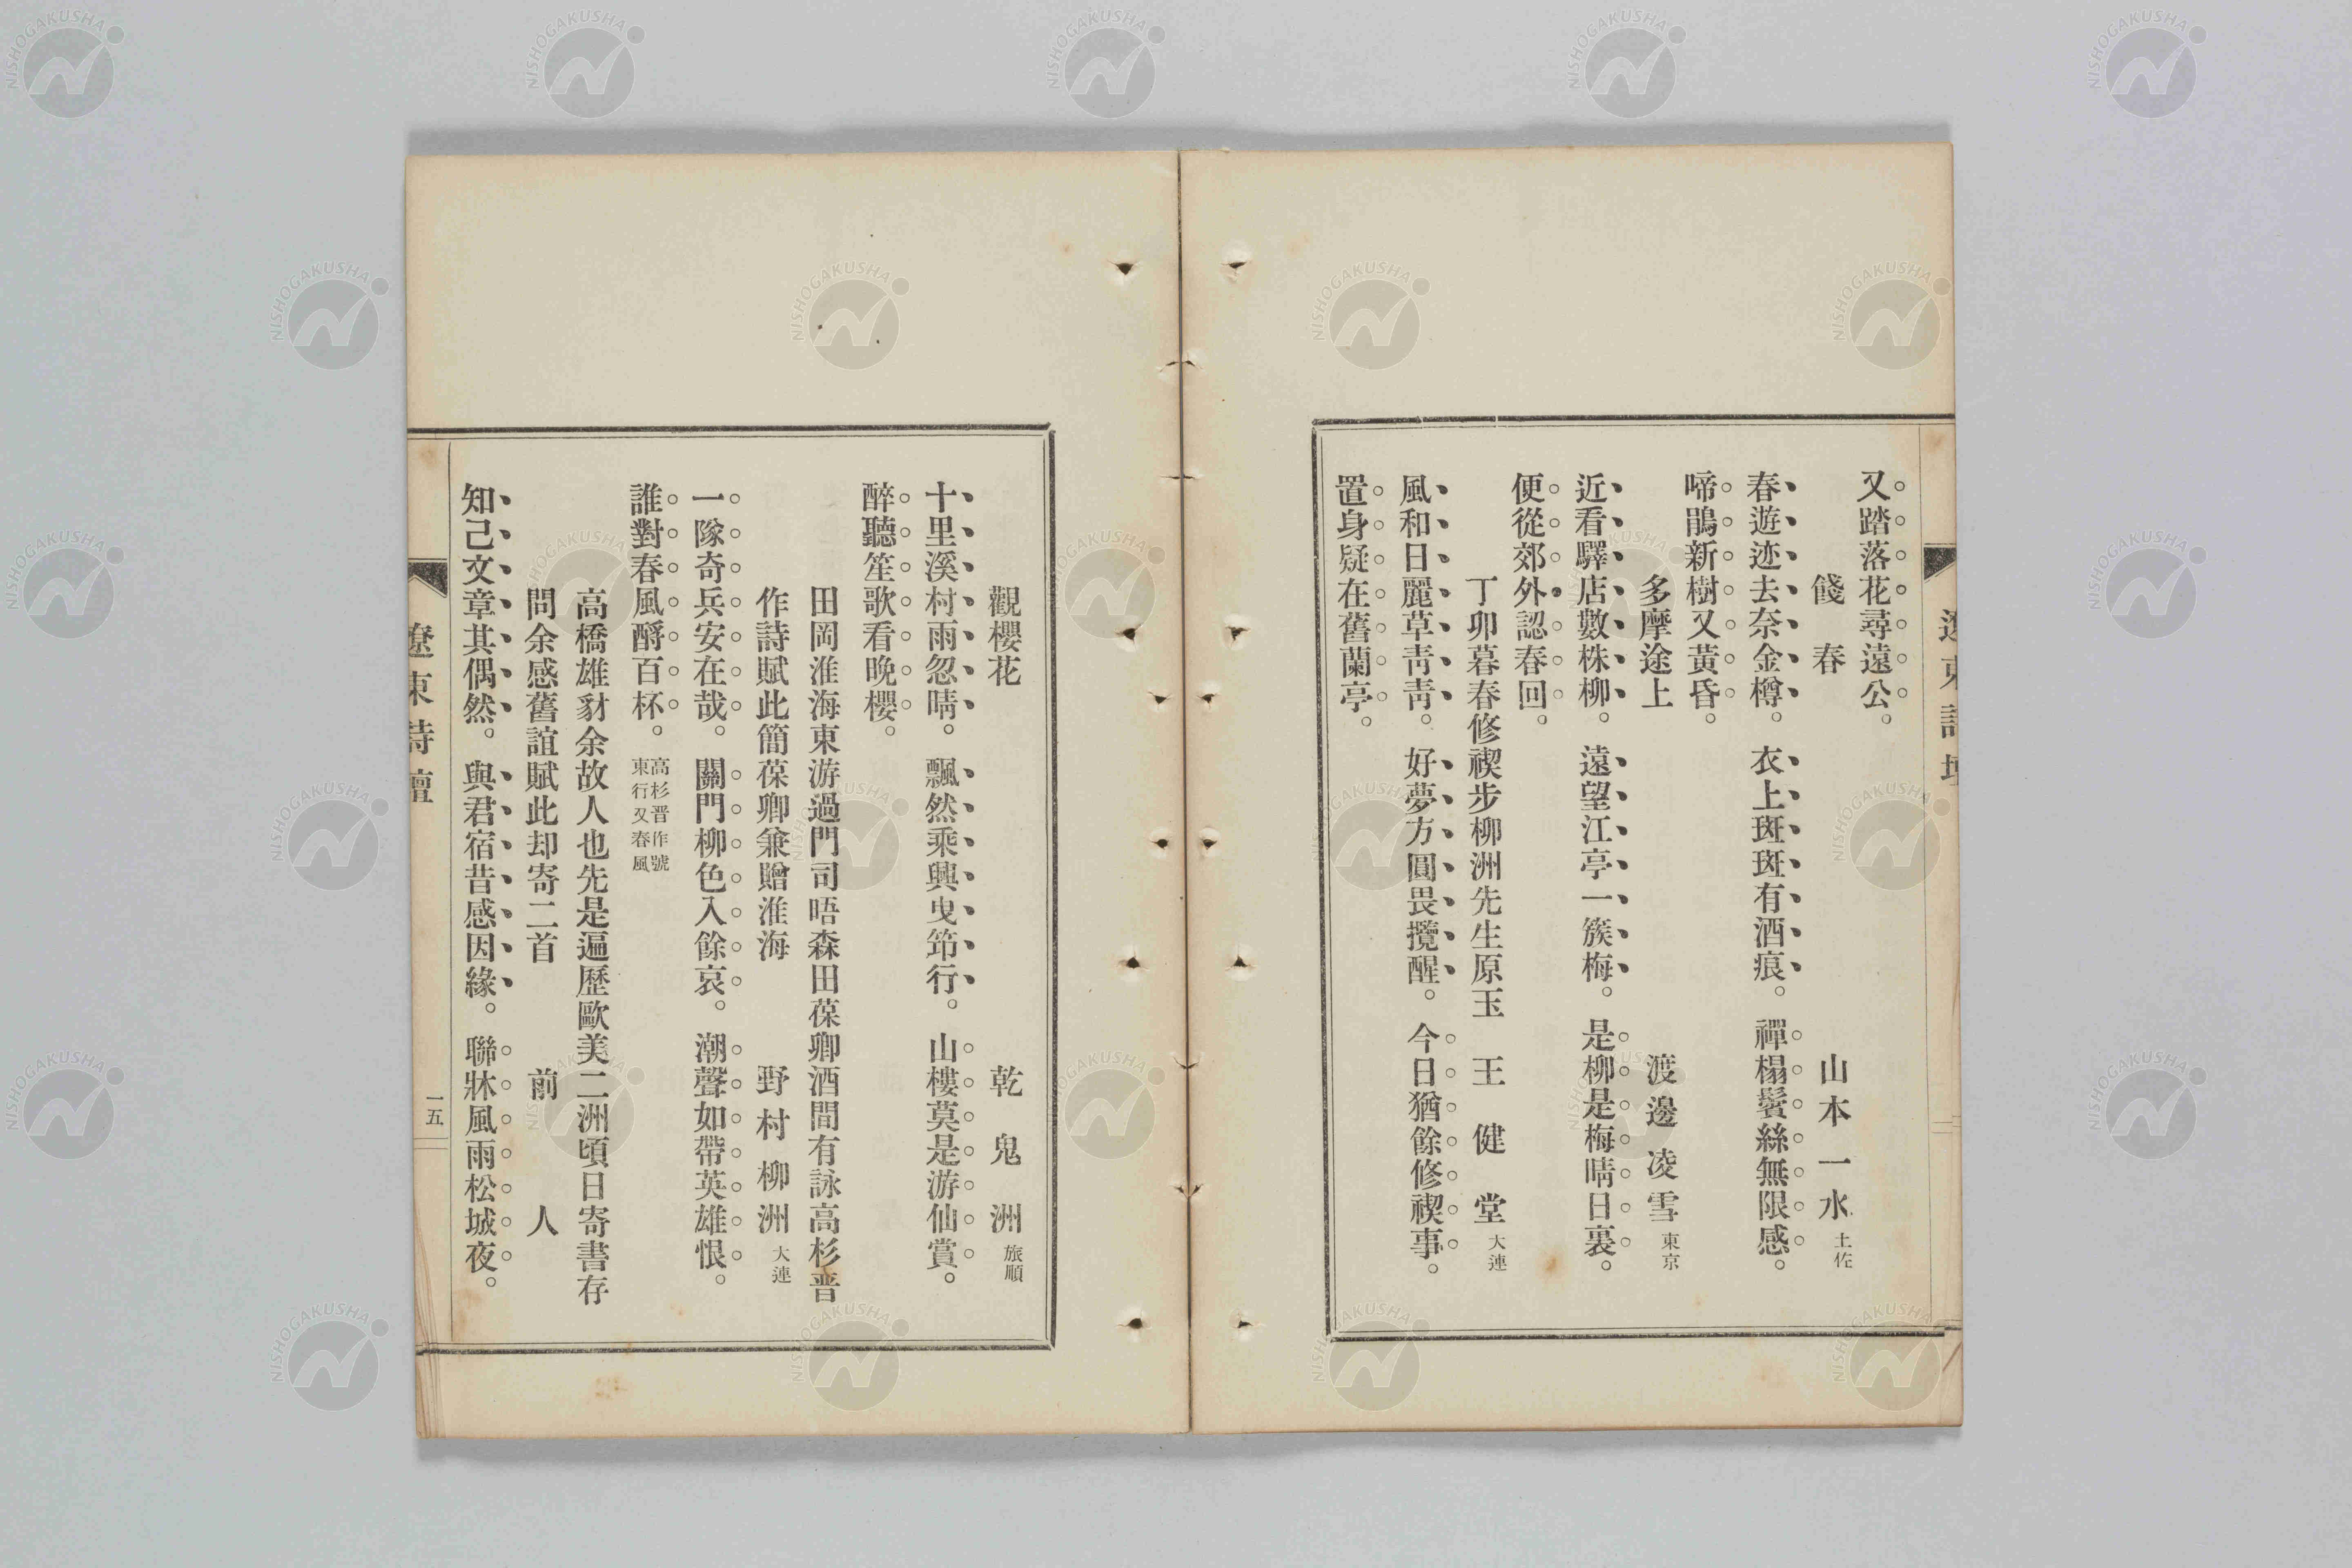 又踏落花尋遠公。
餞春 山本一水 土佐
春遊迹去奈金樽。衣上斑斑有酒痕。禪榻鬢絲無限感。
啼鵑新樹又黃昏。
多摩途上 渡邊凌雪 東京
近看驛店數株柳。遠望江亭一簇梅。是柳是梅晴日裏。
便從郊外認春回。
丁卯暮春修禊步柳洲先生原玉 王健堂 大連
風和日麗草靑靑。好夢方圓畏攪醒。今日猶餘修禊事。
置身疑在舊蘭亭。
觀櫻花 乾鬼洲 旅順
十里溪村雨忽晴。飄然乘興曳筇行。山樓莫是游仙賞。
醉聽笙歌看晚櫻。
田岡淮海東游過門司晤森田葆卿酒間有詠高杉晋
作詩賦此簡葆卿兼贈淮海 野村柳洲 大連
一隊奇兵安在哉。關門柳色入餘哀。潮聲如帶英雄恨。
誰對春風酹百杯。高杉晋作號
東行又春風
高橋雄豺余故人也先是遍歷歐美二洲頃日寄書存
問余感舊誼賦此却寄二首 前人
知己文章其偶然。與君宿昔感因緣。聯牀風雨松城夜。
遼東詩壇
一五
NISHOGAKUSHA